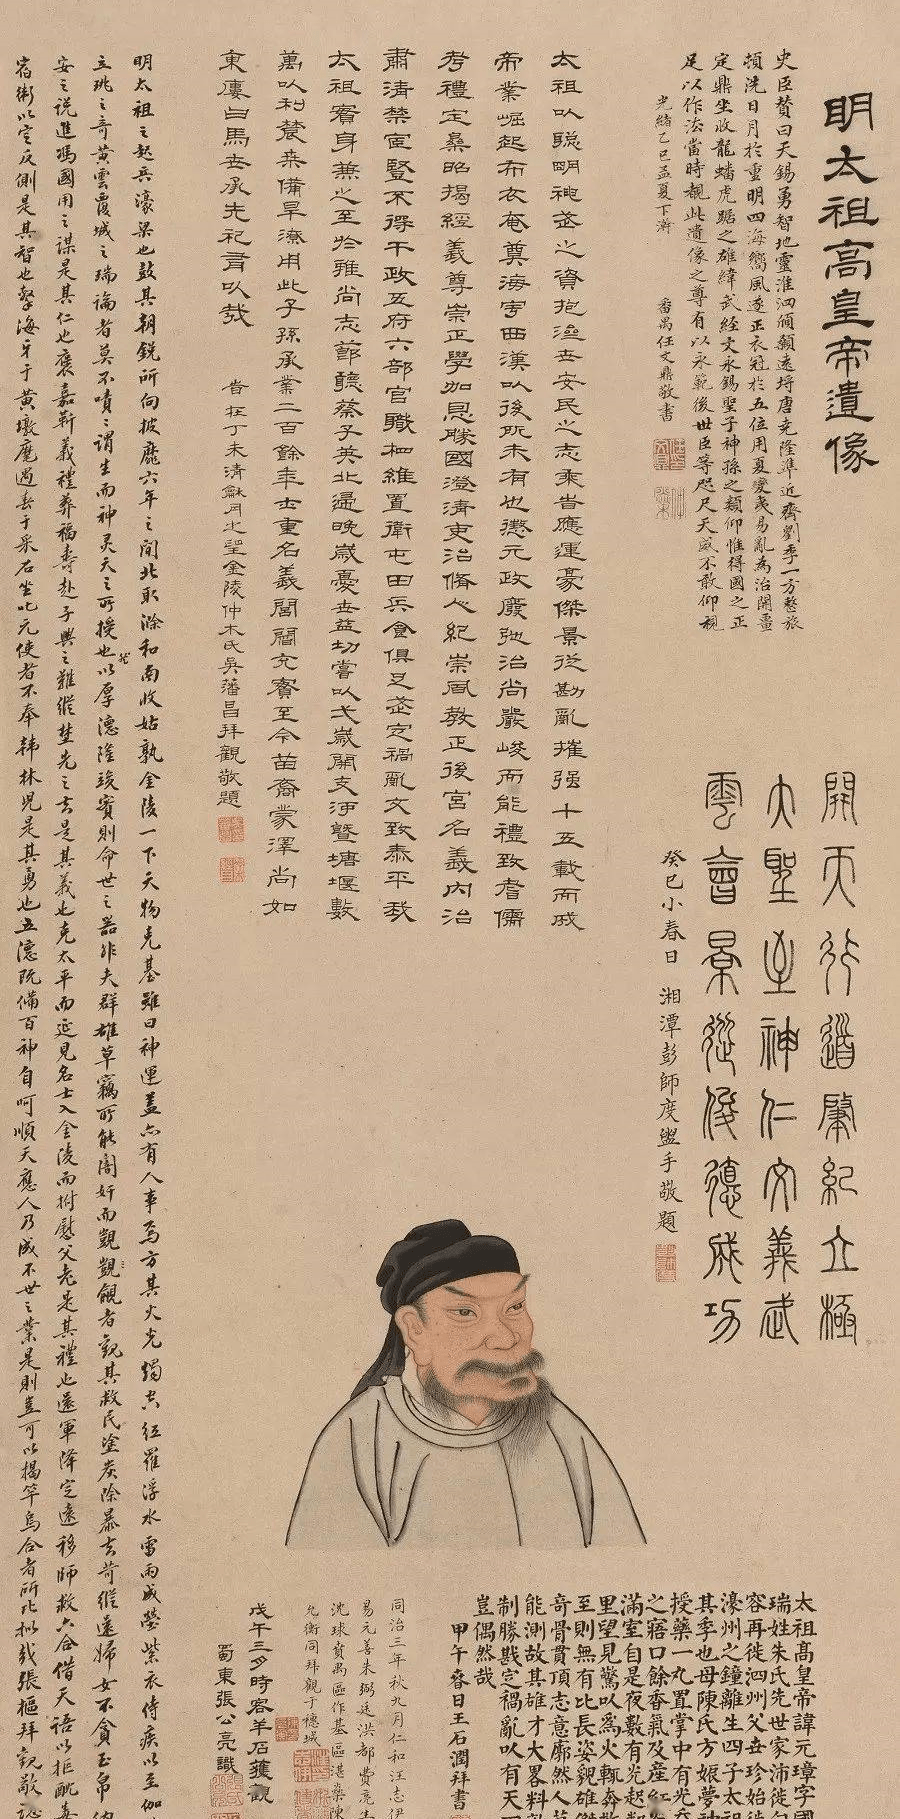 明太祖高皇帝遺像
史臣贊曰天錫勇智地靈淮泗頎顙遠埒唐堯隆準近齊劉季一方整旅
頓洗日月於重明四海嚮風遂正衣冠於五位用夏變夷易亂為治開疆
定鼎坐收龍蟠虎踞之雄緯武經文永錫聖子神孫之類仰惟得國之正
足以作法當時覩此遺像之尊有以永範後世臣等咫尺天威不敢仰視
光緒乙巳孟夏下澣
番禺任文鼎敬書
開天行道肇紀立極
大聖至神仁文義武
雲會景從俊德成功
癸巳小春日 湘潭彭師度盥手敬題
太祖以聰明神武之資抱濟世安民之志乘時應運豪傑景從勘亂摧强十五載而成
帝業崛起布衣奄奠海宇西漢以後所未有也懲元政廢弛治尚嚴峻而能禮致耆儒
考禮定樂昭揭經義尊崇正學加恩勝國澄清吏治脩人紀崇風教正後宮名義內治
肅清禁宦豎不得干政五府六部官職相維置衛屯田兵食俱足武定禍亂文致泰平我
太祖實身兼之至於雅尚志節聽蔡子英北還晚歲憂世益切嘗以弋歲開支河暨塘堰數
萬以利農桑備旱潦用此子孫承業二百餘年士重名義閭閻充實至今苗裔蒙澤尚如
東樓白馬世承先祀有以哉
旹在丁未清龢月之望金陵仲木氏吳藩昌拜觀敬題
明太祖之起兵濠梁也鼓其朝銳所向披靡六年之間北取滁和南收姑孰金陵一下天物克基雖曰神運蓋亦有人事焉方其火光燭空紅羅浮水雷雨成瑩紫衣侍疾以至伽
立珧之奇黃雲覆城之瑞論者莫不嘖嘖謂生而神灵天之所授也以厚德隆竣實則命世之器非夫群雄草竊所能闇奸而覬覦者觀其救民塗炭除暴去苛縱遠婦女不貪玉帛
安之說進馮國用之謀是其仁也褒嘉靳義禮葬福壽赴子興之難縱埜先之去是其義也克太平而延見名士入金陵而拊慰父老是其禮也還軍降定遠移師救六合借天語以拒酖毒
宿衛以定反側是其智也擊海牙于黃墩麾過春于采石坐叱元使者不奉韩林児是其勇也五德既備百神自呵順天應人乃成不世之業是則豈可以揭竿烏合者所比拟哉張樞拜觀敬誌
太祖高皇帝諱元璋字國
瑞姓朱氏先世家沛徙
容再徙泗州父世珍始徙
濠州之鐘離生四子太祖
其季也母陳氏方娠夢神
授藥一丸置掌中有光
之寤口餘香氣及產紅
滿室自是夜數有光起
里望見驚以為火輒奔救
至則無有比長姿貌雄傑
奇骨貫頂志意廓然人
能測故其雄才大畧料
制勝戡定禍亂以有天
豈偶然哉
甲午春日王石潤拜書
同治三年秋九月仁和汪志伊
易元善朱弼廷洪都費
沈球賀禺區作基區湛棻陳
允衡同拜觀于穗城
戊午三夕時客羊石獲觀
蜀東張公亮識